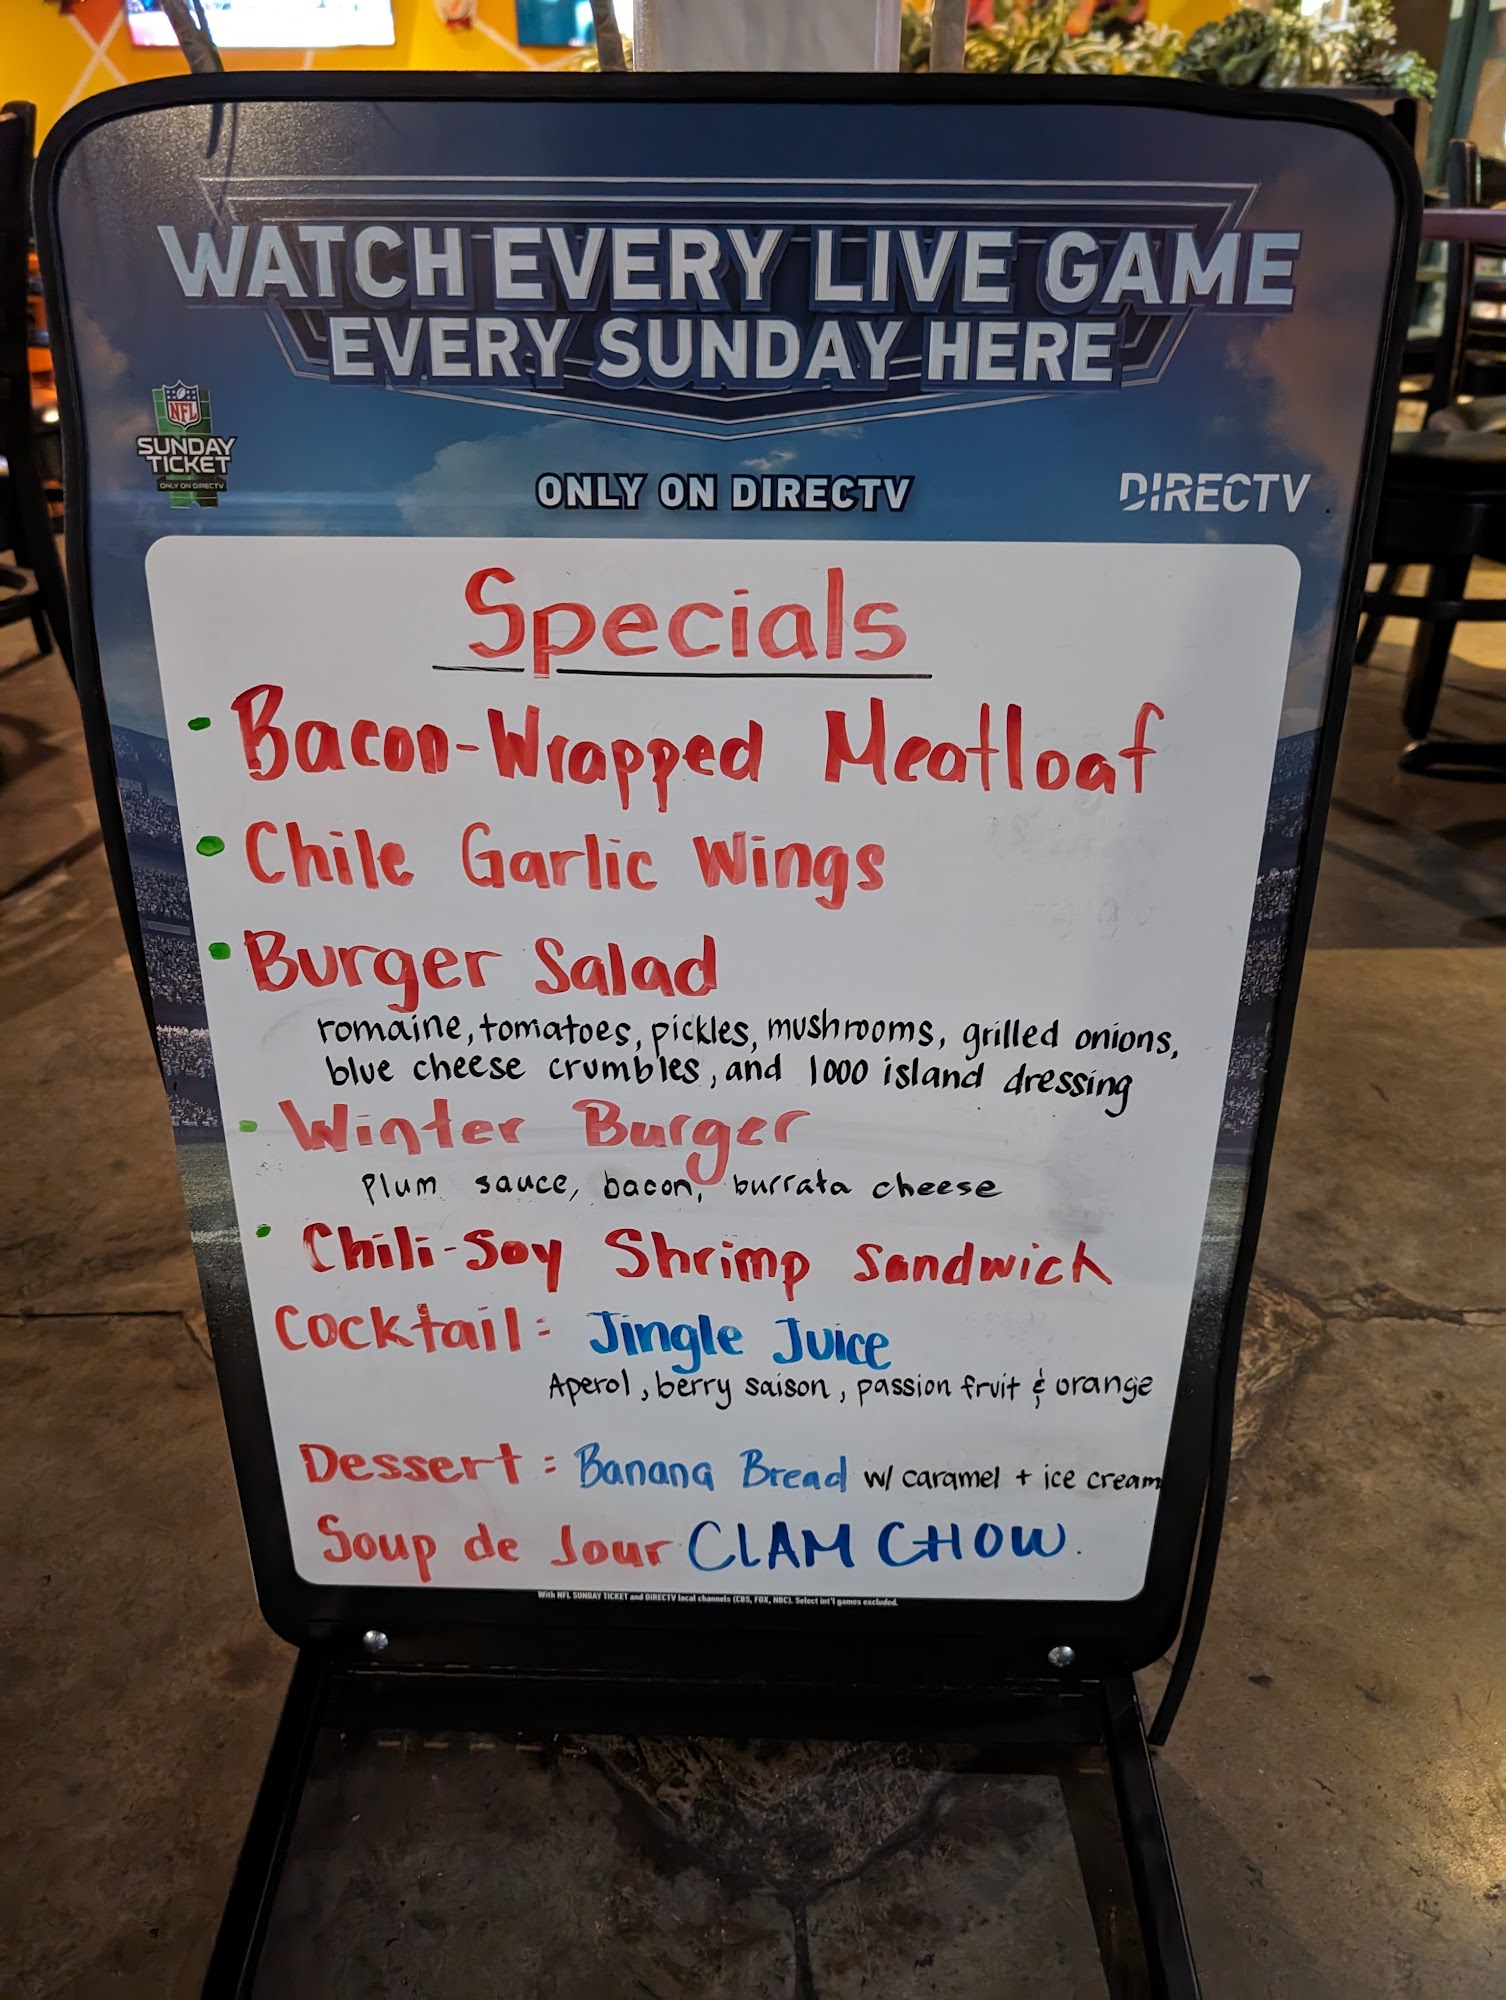 WATCH EVERY LIVE GAME
EVERY SUNDAY HERE
NFL
SUNDAY
TICKET
ONLY ON DIRECTV
ONLY ON DIRECTV
DIRECTV
Specials
Bacon-Wrapped Meatloaf
Chile Garlic Wings
Burger Salad
romaine, tomatoes, pickles, mushrooms, grilled onions,
blue cheese crumbles, and 1000 island dressing
Winter Burger
Plum sauce, bacon, burrata cheese
Chili-Soy Shrimp Sandwich
Cocktail: Jingle Juice
Aperol, berry saison, passion fruit & orange
Dessert: Banana Bread w/ caramel + ice cream
Soup de Jour CLAM CHOW.
With NFL SUNDAY TICKET and DIRECTV local channels (CBS, FOX, NBC). Select int'l games excluded.